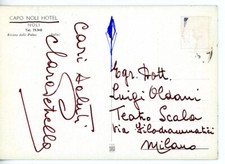 CAPO NOLI HOTEL
NOLI
Riviera delle Palme
Cari Saluti
Egr. Dott.
Luigi Oldani
Teatro Scala
Via Filodrammatici
Milano